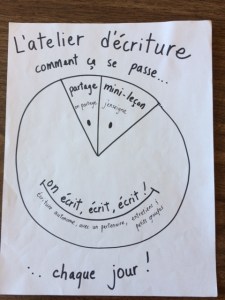 L'atelier d'écriture
comment ça se passe...
partage
on partage
mini-leçon
j'enseigne
on écrit, écrit, écrit !
écriture autonome, avec un partenaire, entretiens & petits groupes
... chaque jour !